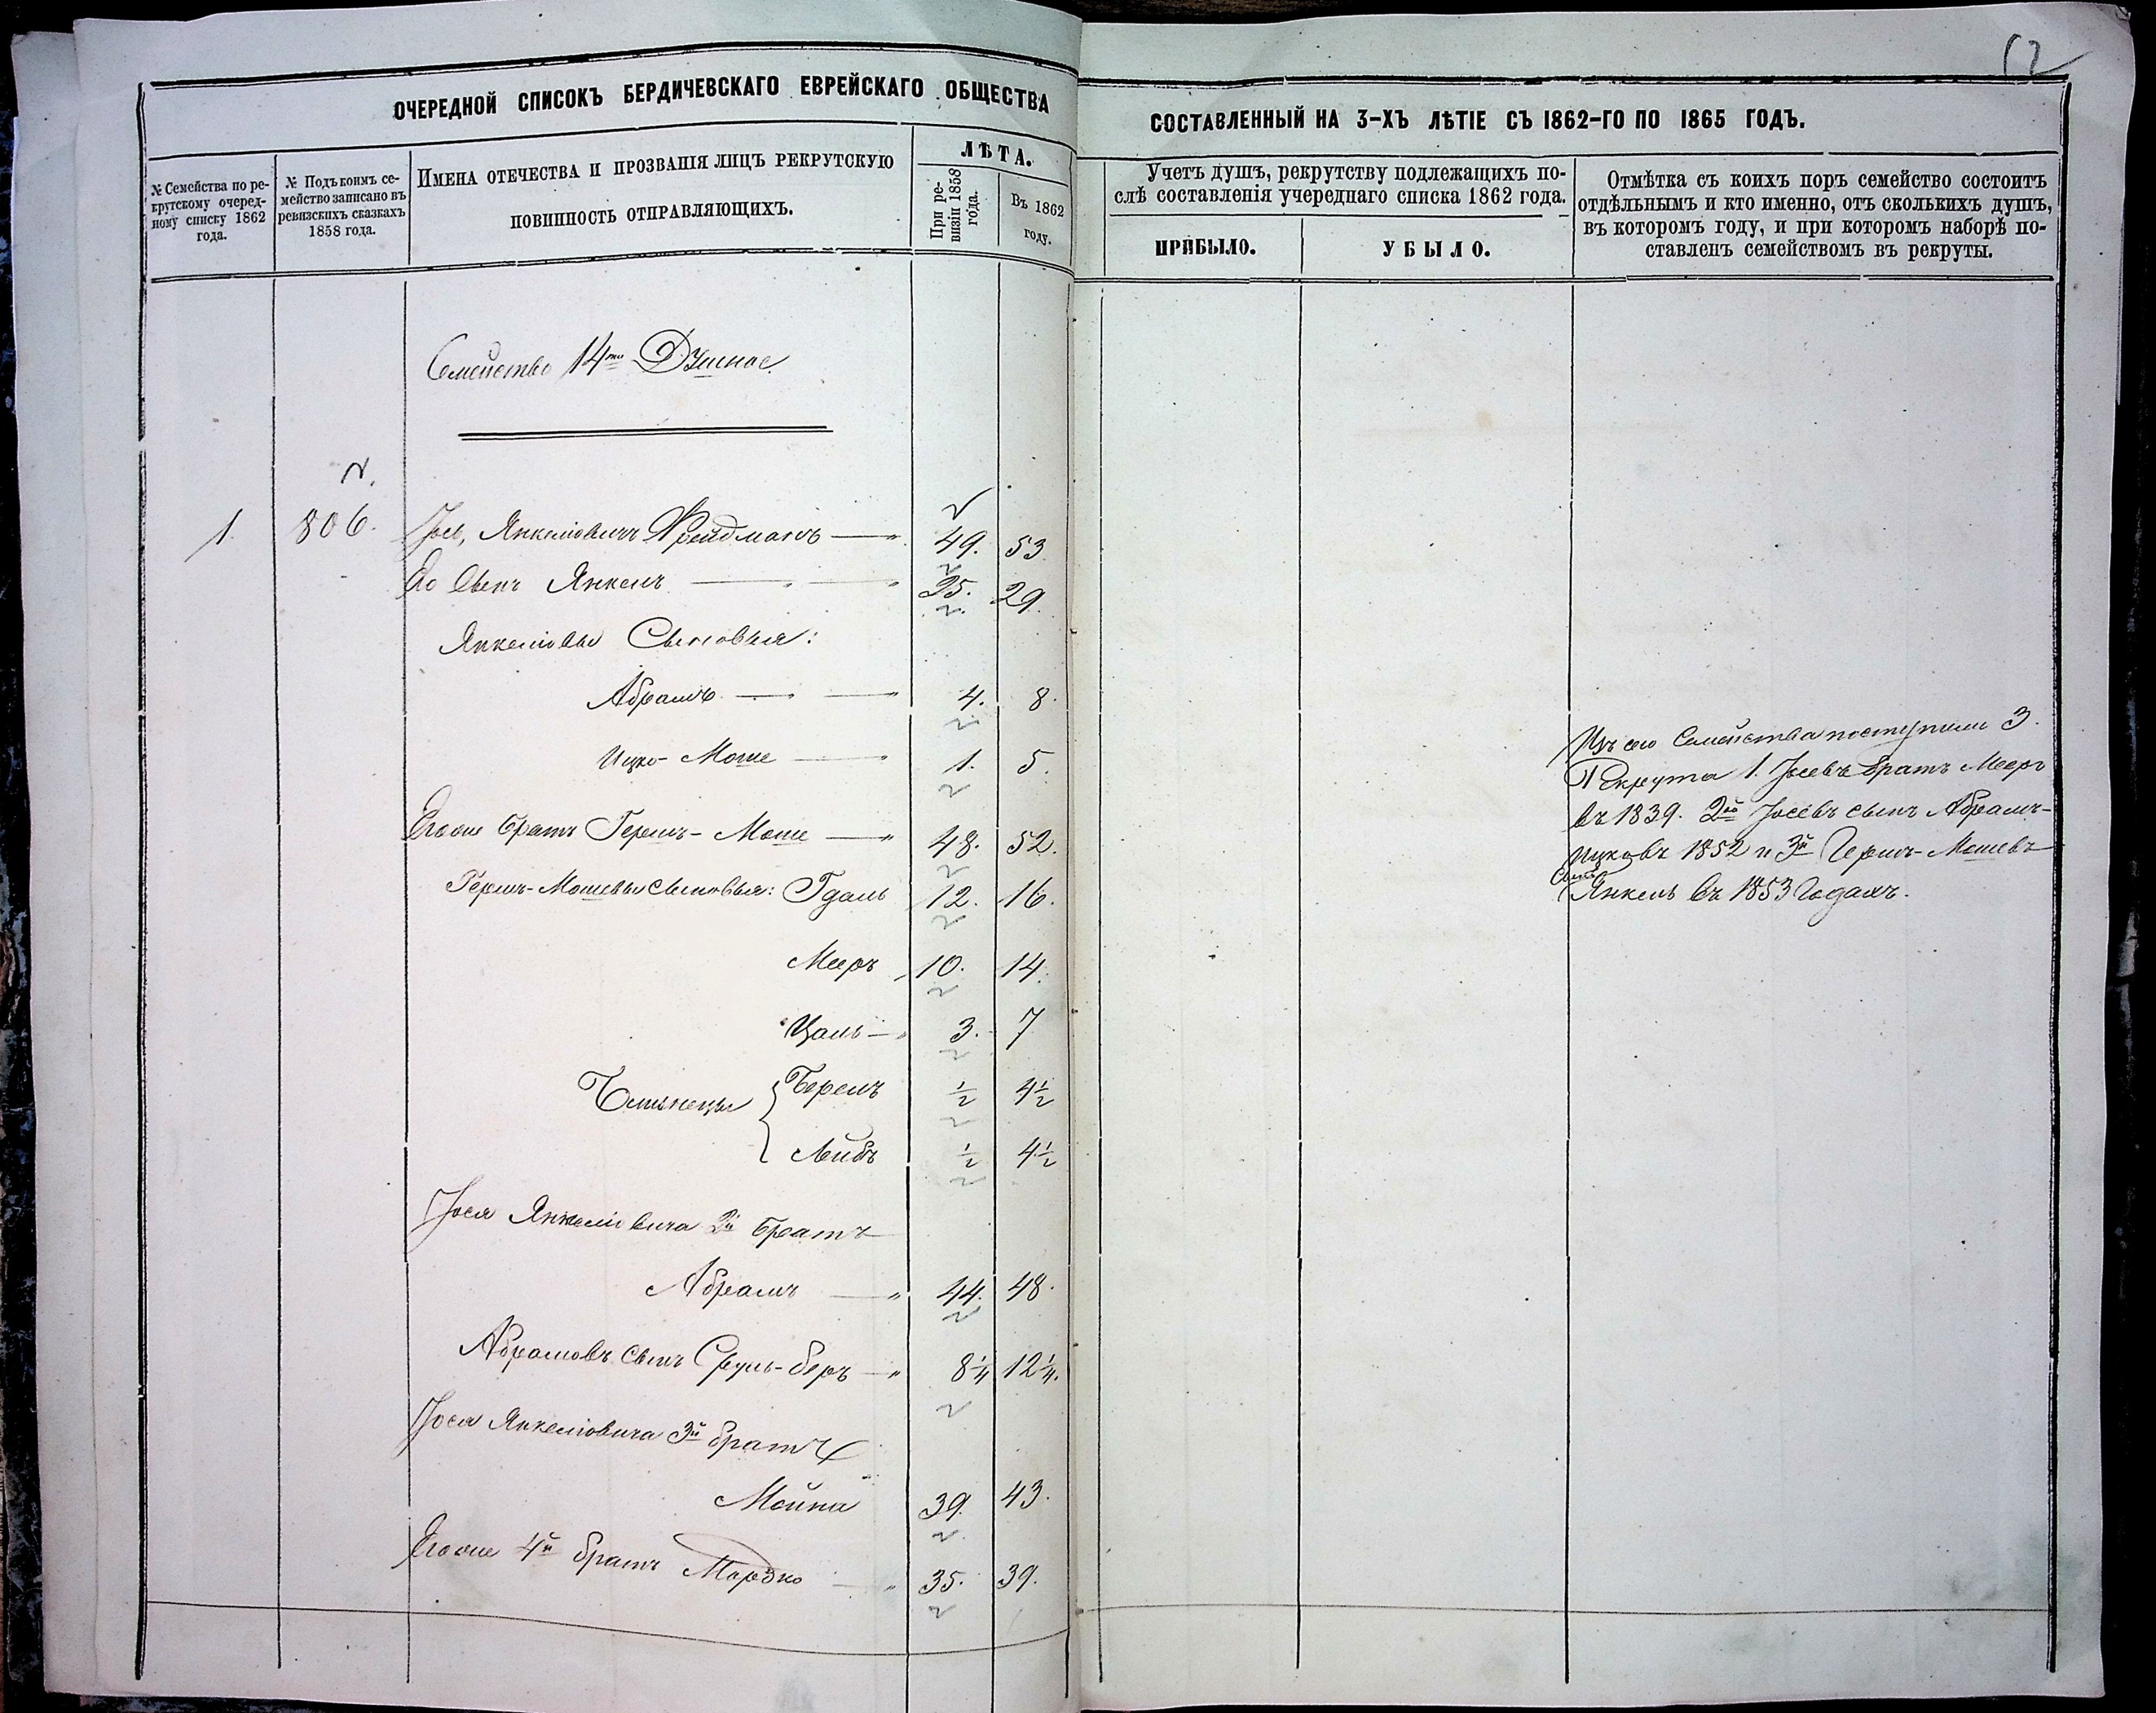 12
ОЧЕРЕДНОЙ СПИСОКЪ БЕРДИЧЕВСКАГО ЕВРЕЙСКАГО ОБЩЕСТВА
СОСТАВЛЕННЫЙ НА 3-ХЪ ЛѢТІЕ СЪ 1862-ГО ПО 1865 ГОДЪ.
№ Семейства по ре-
крутскому очеред-
ному списку 1862
года.
№ Подъ коимъ се-
мейство записано въ
ревизскихъ сказкахъ
1858 года.
ИМЕНА ОТЕЧЕСТВА И ПРОЗВАНІЯ ЛИЦЪ РЕКРУТСКУЮ
ПОВИННОСТЬ ОТПРАВЛЯЮЩИХЪ.
ЛѢТА.
При ре-
визіи 1858
года.
Въ 1862
году.
Учетъ душъ, рекрутству подлежащихъ по-
слѣ составленія учереднаго списка 1862 года.
ПРИБЫЛО.
УБЫЛО.
Отмѣтка съ коихъ поръ семейство состоитъ
отдѣльнымъ и кто именно, отъ сколькихъ душъ,
въ которомъ году, и при которомъ наборѣ по-
ставленъ семействомъ въ рекруты.
Семейство 14ти Душное
1. 806. Іось, Янкеліовичъ Фрейдманъ — 49. 53
Его Сынъ Янкель — 25. 29.
Янкеліовы Сыновья:
Абрамъ — 4. 8.
Ицко-Моше — 1. 5.
Его же братъ Гершъ-Моше — 48. 52.
Гершъ-Мошевы Сыновья: Гдаль 12. 16.
Мееръ 10. 14.
Цаль — 3. 7
Близнецы { Берель ½ 4½
Лейбъ ½ 4½
Іося Янкеліовича 2й братъ
Абрамъ — 44. 48.
Абрамовъ сынъ Сруль-беръ — 8¼ 12¼.
Іося Янкеліовича 3й братъ
Мойна 39. 43.
Его же 4й братъ Мордко — 35. 39.
Изъ сего Семейства поступили 3.
Рекрута 1. Іосевъ братъ Мееръ
въ 1839. 2й Іосевъ сынъ Абрамъ-
Ицко въ 1852 и 3й Гершъ-Мошевъ
Сынъ
Янкель въ 1853 Годахъ.